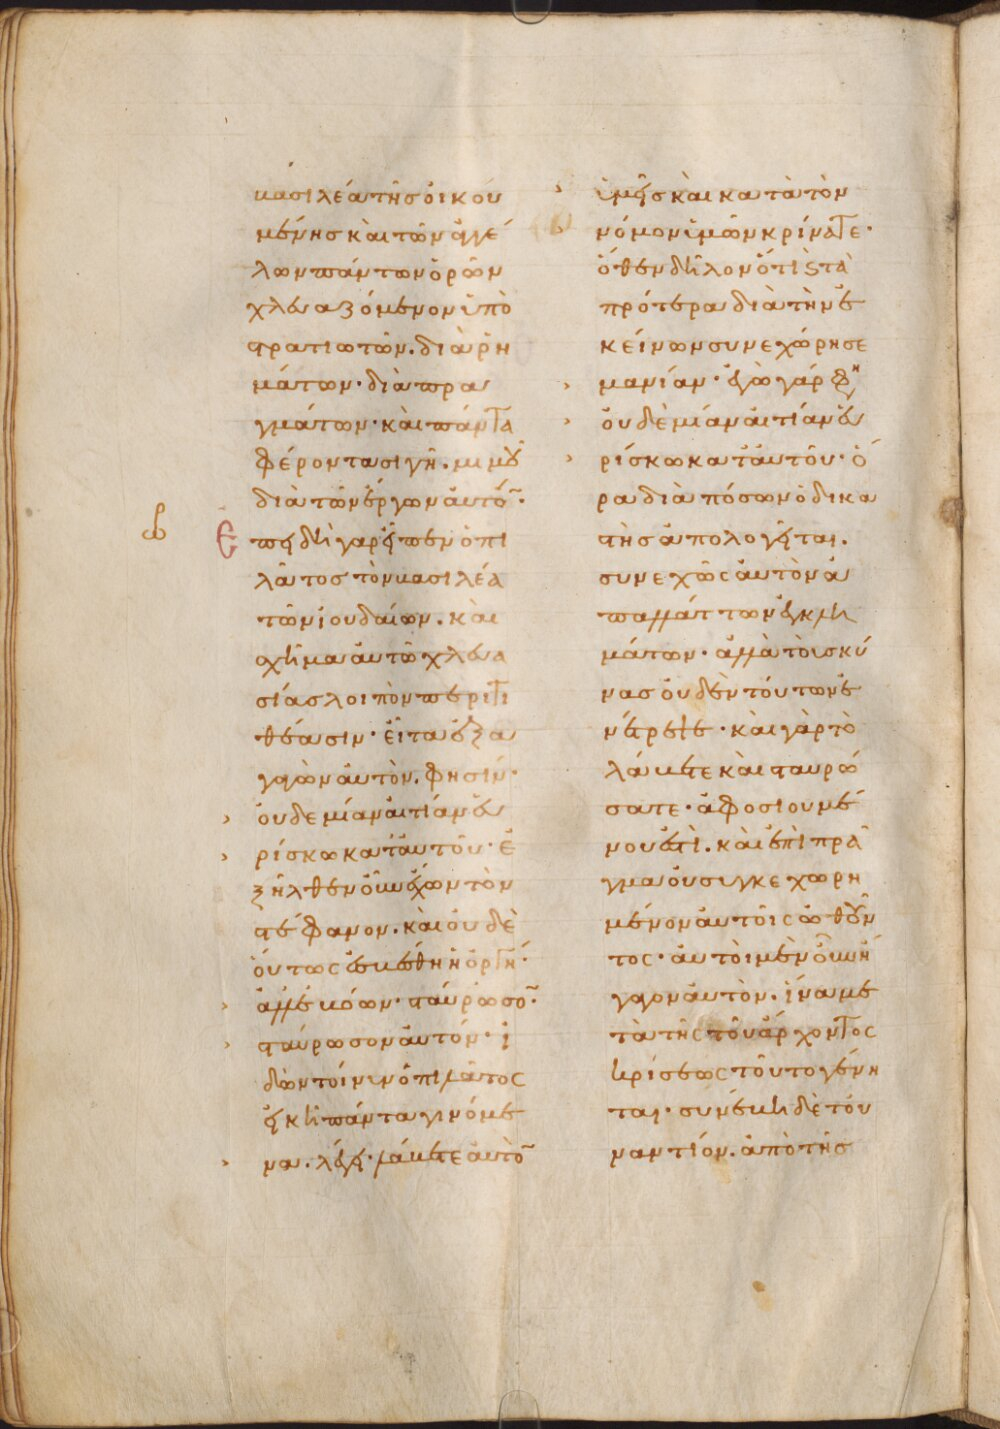 βασιλέα τῆς οἰκου
μένης καὶ τῶν ἀγγέ
λων πάντων ὁρῶν
χλευαζόμενον ὑπὸ
στρατιωτῶν. διὰ ῥη
μάτων· διὰ πρα
γμάτων· καὶ πάντα
φέροντα σιγῆ. μιμοῦ
διὰ τῶν ἔργων αὐτό̃·
ὡρ
Ἐπειδὴ γὰρ εἶπεν ὁ πι
λᾶτος τὸν βασιλέα
τῶν ἰουδαίων. καὶ
σχῆμα αὐτῶ χλευα
σίας λοιπὸν περιτι
θέασιν· εἶτα ἐξα
γαγὼν αὐτὸν. φησὶν·
οὐδεμίαν αἰτίαν εὑ
ρίσκω κατ' αὐτοῦ· ἐ
ξῆλθεν οὖν ἔχων τὸν
στέφανον. καὶ οὐδὲ
οὕτως ἐσβέσθη ἡ ὀργή·
ἀλλ' ἐβόων· σταύρωσο̃·
σταύρωσον αὐτόν· ἰ
δὼν τοίνυν ὁ πιλᾶτος
εἰκῆ πάντα γινόμε
να. λέγει· λάβετε αὐτὸ̃
ὑμεῖς καὶ κατὰ τὸν
νόμον ὑμῶν κρίνατε·
ὅθεν δῆλον ὅτι ϛ τὰ
πρότερα διὰ τὴν ἐ
κείνων συνεχώρησε
μανίαν· ἐγὼ γάρ φη
οὐδεμίαν αἰτίαν εὑ
ρίσκω κατ' αὐτοῦ· ὅ
ρα διὰ πόσων ὁ δικα
στὴς ἀπολογεῖται.
συνεχῶς αὐτὸν ἀ
παλλάττων ἐγκλη
μάτων· ἀλλὰ τοὺς κύ
νας οὐδὲν τούτων ἐ
νέτρεψε· καὶ γὰρ τὸ
λάβετε καὶ σταυρώ
σατε· ἀφοσιουμέ
νου ἐστὶ. καὶ ἐπὶ πρᾶ
γμα οὐ συγκεχωρη
μένον αὐτοῖς ὠθοῦν
τος· αὐτοὶ μὲν οὖν ἤ
γαγον αὐτὸν. ἵνα με
τὰ τῆς τοῦ ἄρχοντος
κρίσεως τοῦτο γένη
ται· συνέβη δὲ τοὐ
ναντίον. ἀπὸ τῆς